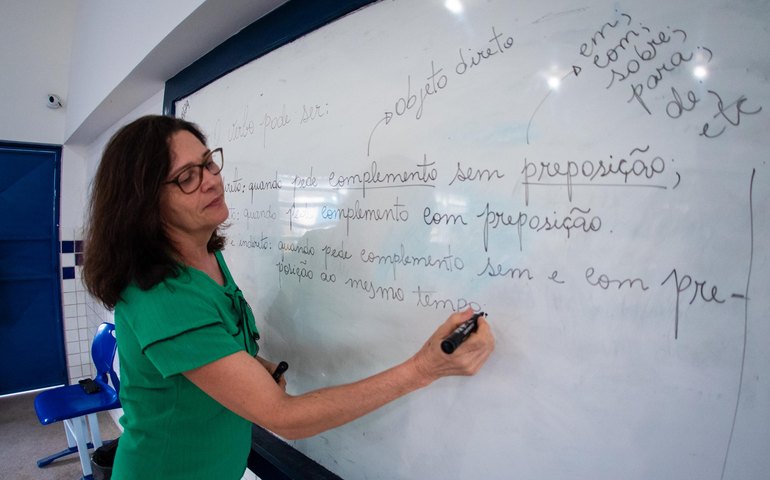 objeto direto
em;
com;
sobre;
para;
de;
etc
O verbo pode ser:
quando pede complemento sem preposição;
quando pede complemento com preposição.
e indireto: quando pede complemento sem e com pre-
posição ao mesmo tempo